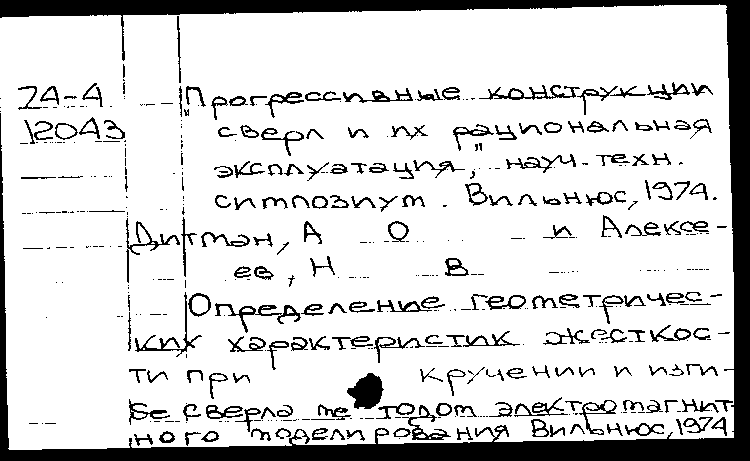 74-4 „Прогрессивные конструкции
12043 сверл и их рациональная
эксплуатация", науч.-техн.
симпозиум. Вильнюс, 1974.
Дитман, А О и Алексе-
ев, Н В
Определение геометричес-
ких характеристик жесткос-
ти при кручении и изги-
бе сверла методом электромагнит-
ного моделирования Вильнюс, 1974